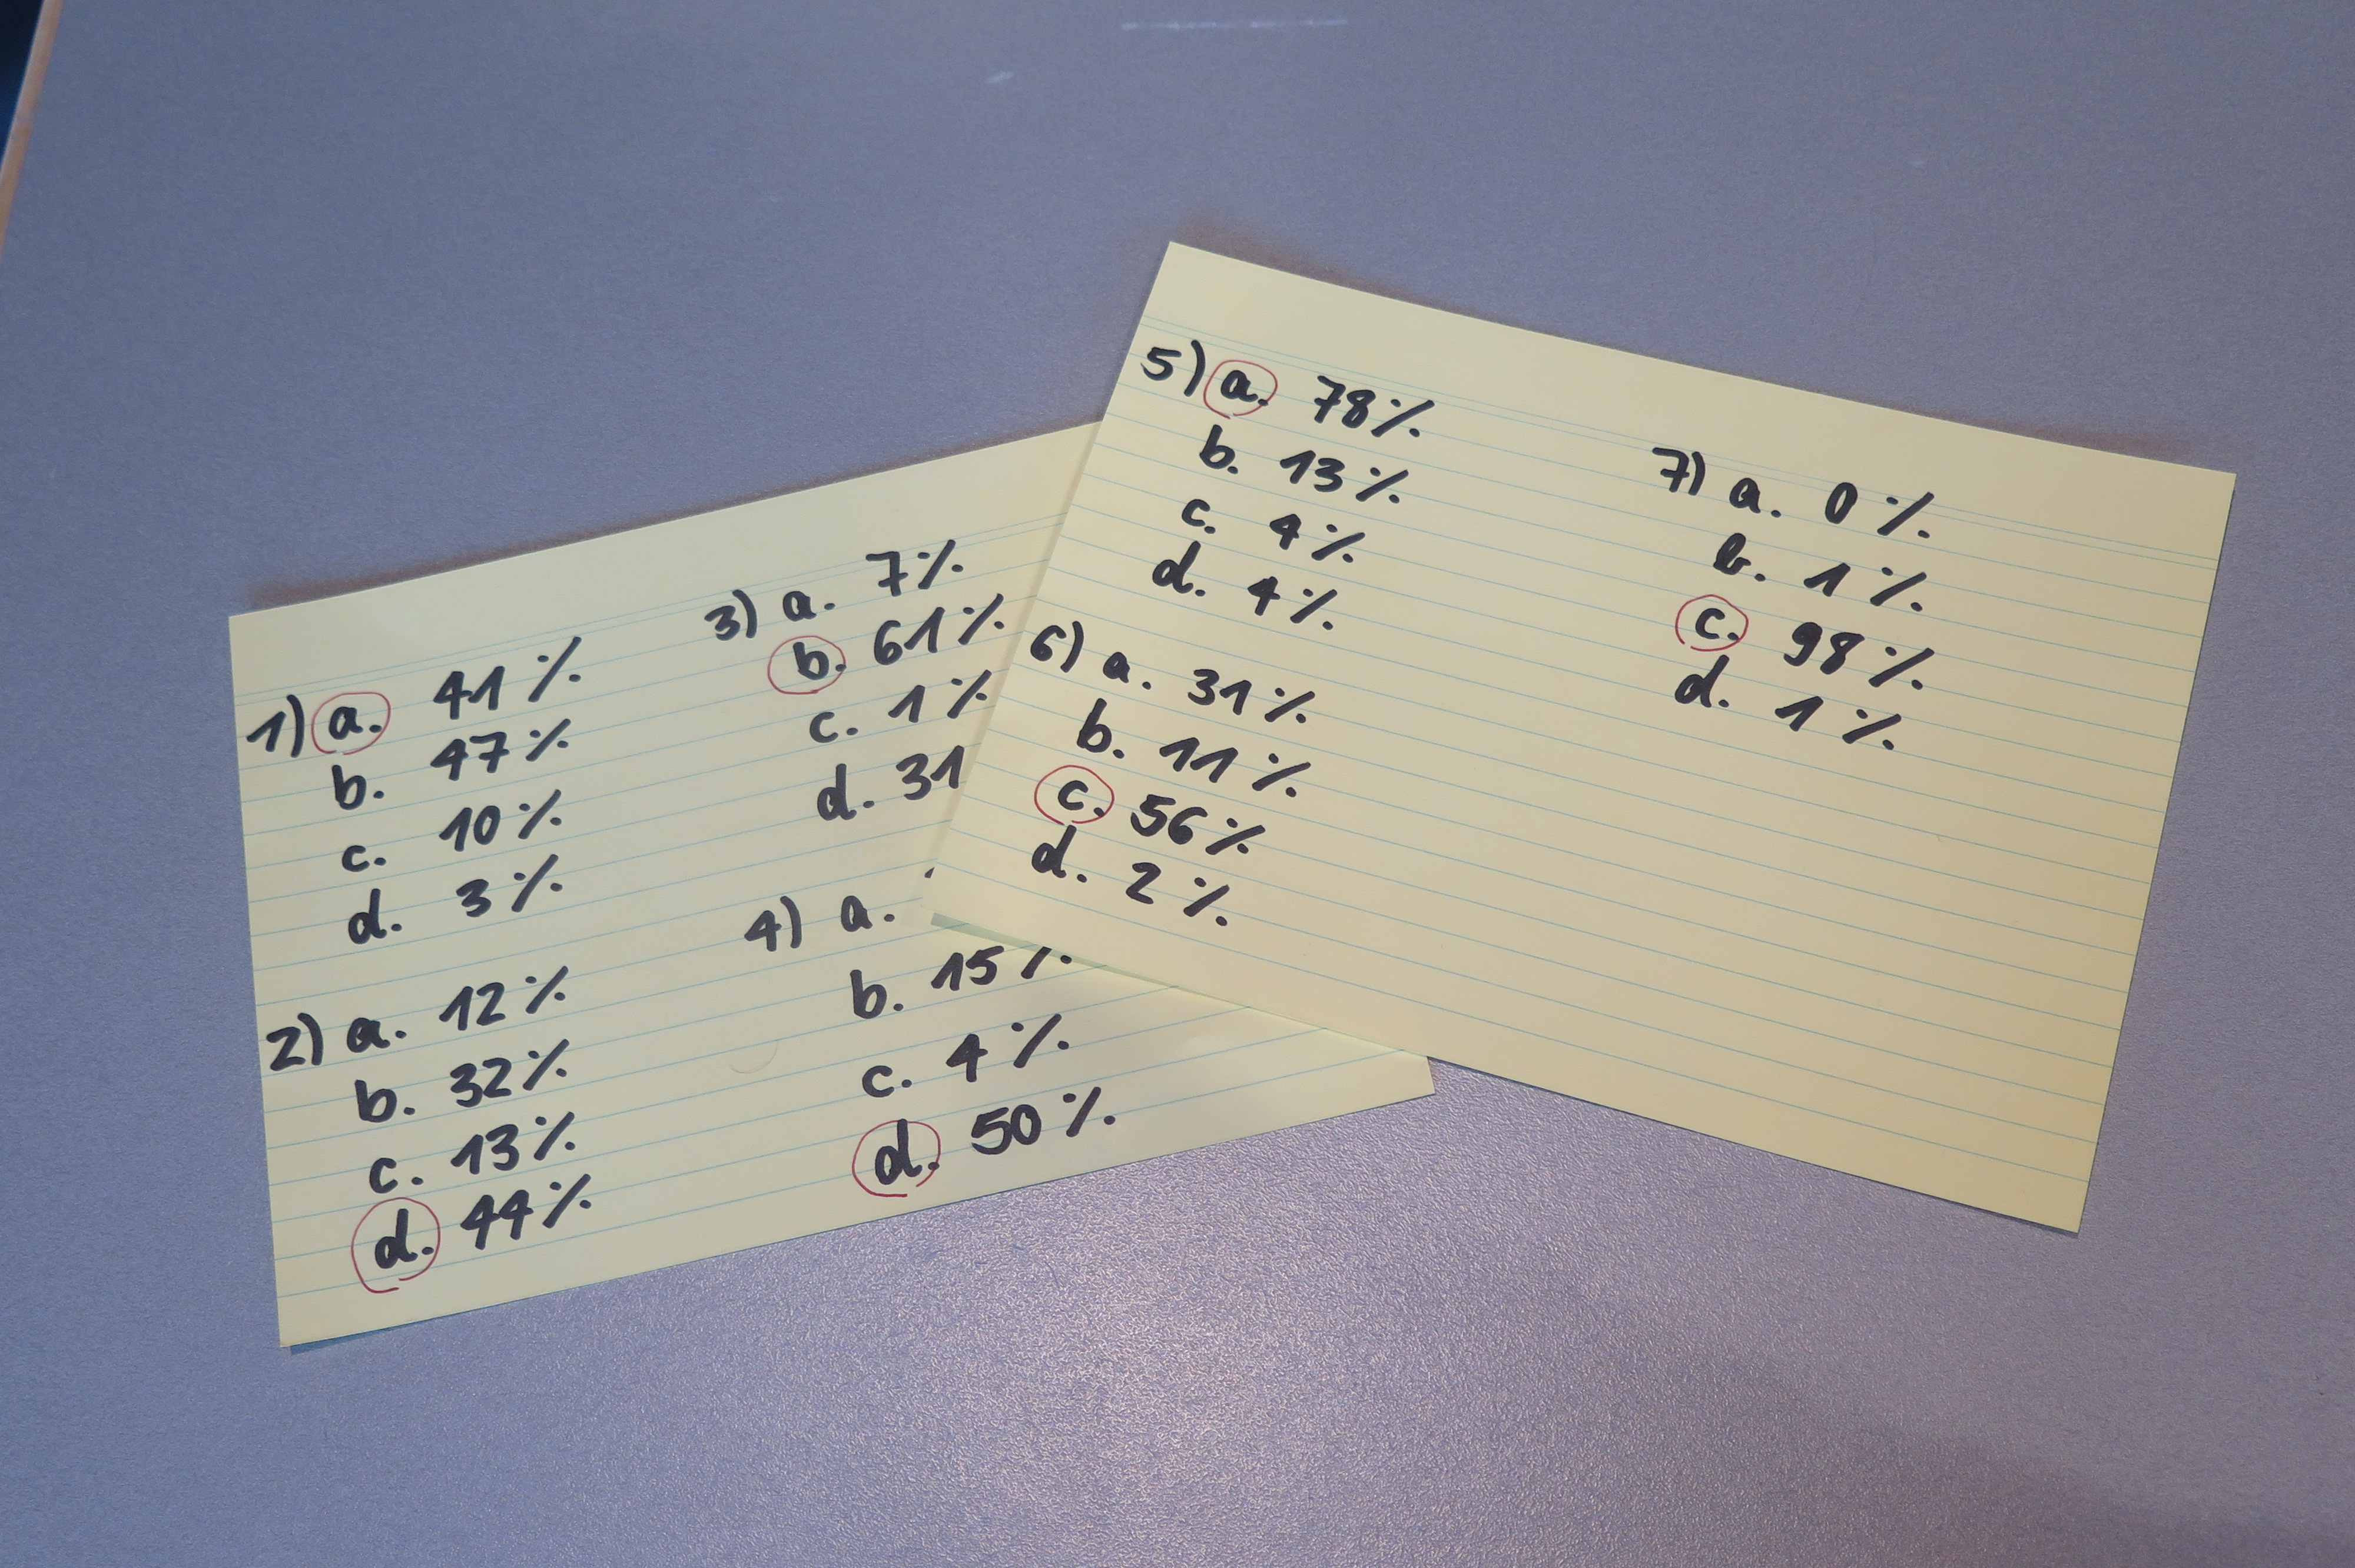 1) a. 41%
b. 47%
c. 10%
d. 3%
2) a. 12%
b. 32%
c. 13%
d. 44%
3) a. 7%
b. 61%
c. 1%
d. 31
4) a.
b. 15%
c. 4%
d. 50%
5) a. 78%
b. 13%
c. 4%
d. 4%
6) a. 31%
b. 11%
c. 56%
d. 2%
7) a. 0%
b. 1%
c. 98%
d. 1%